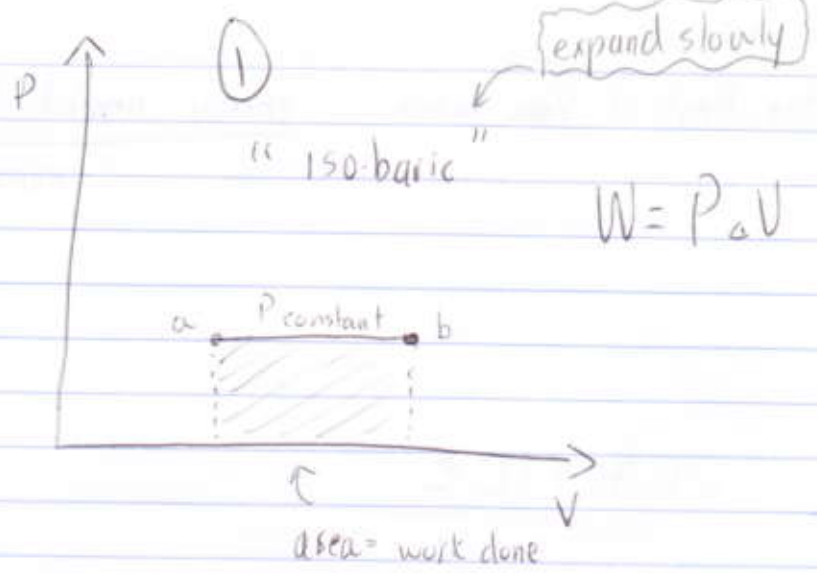 P
1
expand slowly
" iso-baric "
W = P△V
a P constant b
V
area = work done